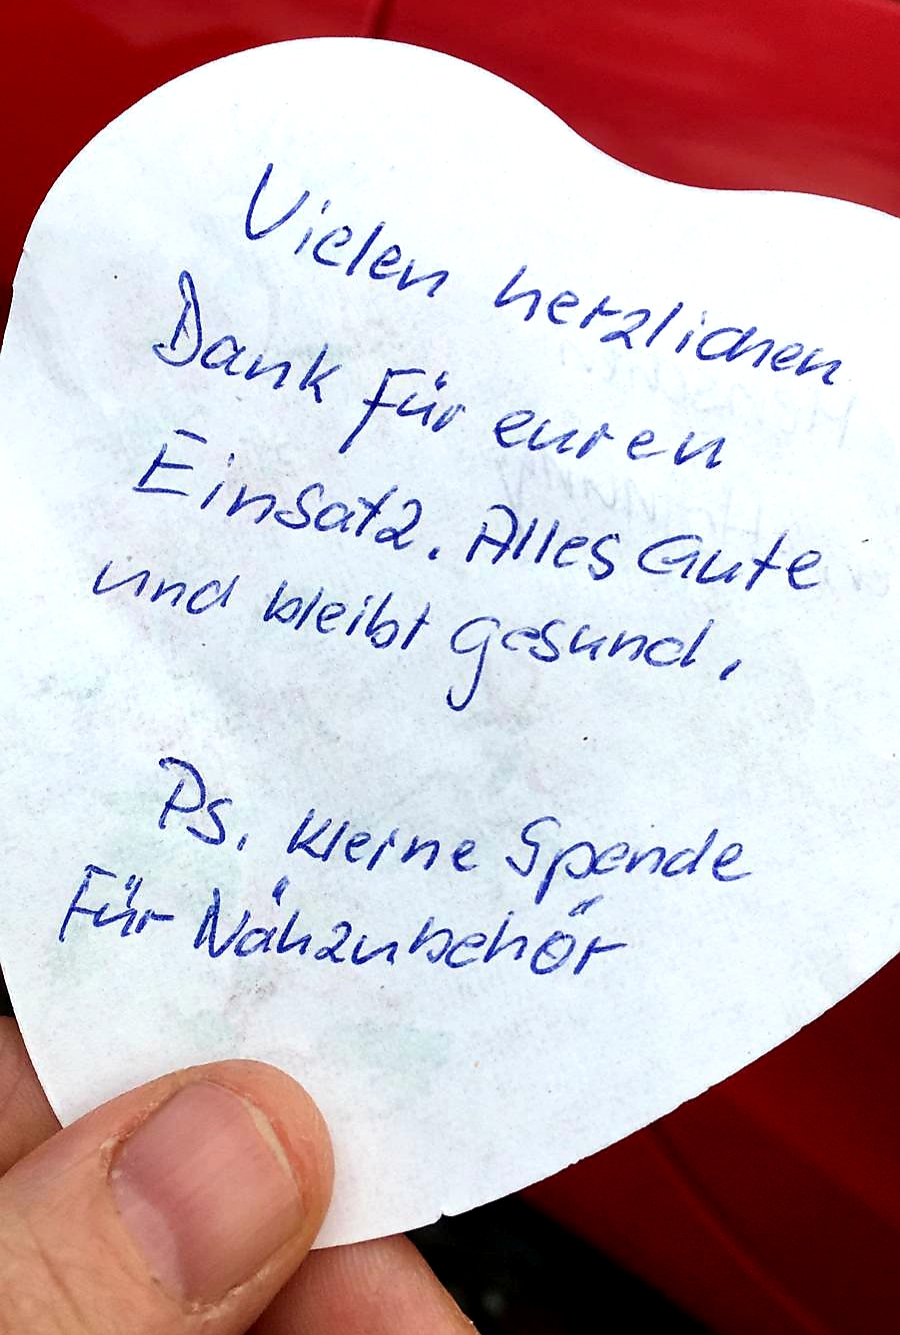 Vielen herzlichen
Dank für euren
Einsatz. Alles Gute
und bleibt gesund.
Ps. kleine Spende
Für Nähzubehör